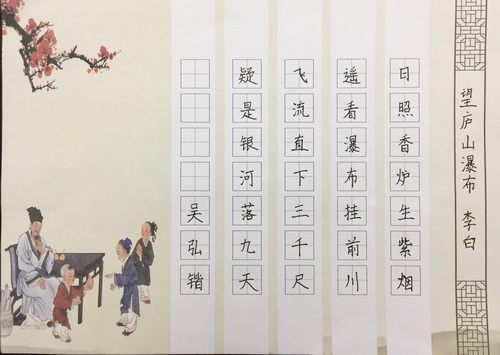 望庐山瀑布 李白
日照香炉生紫烟
遥看瀑布挂前川
飞流直下三千尺
疑是银河落九天
吴弘锴